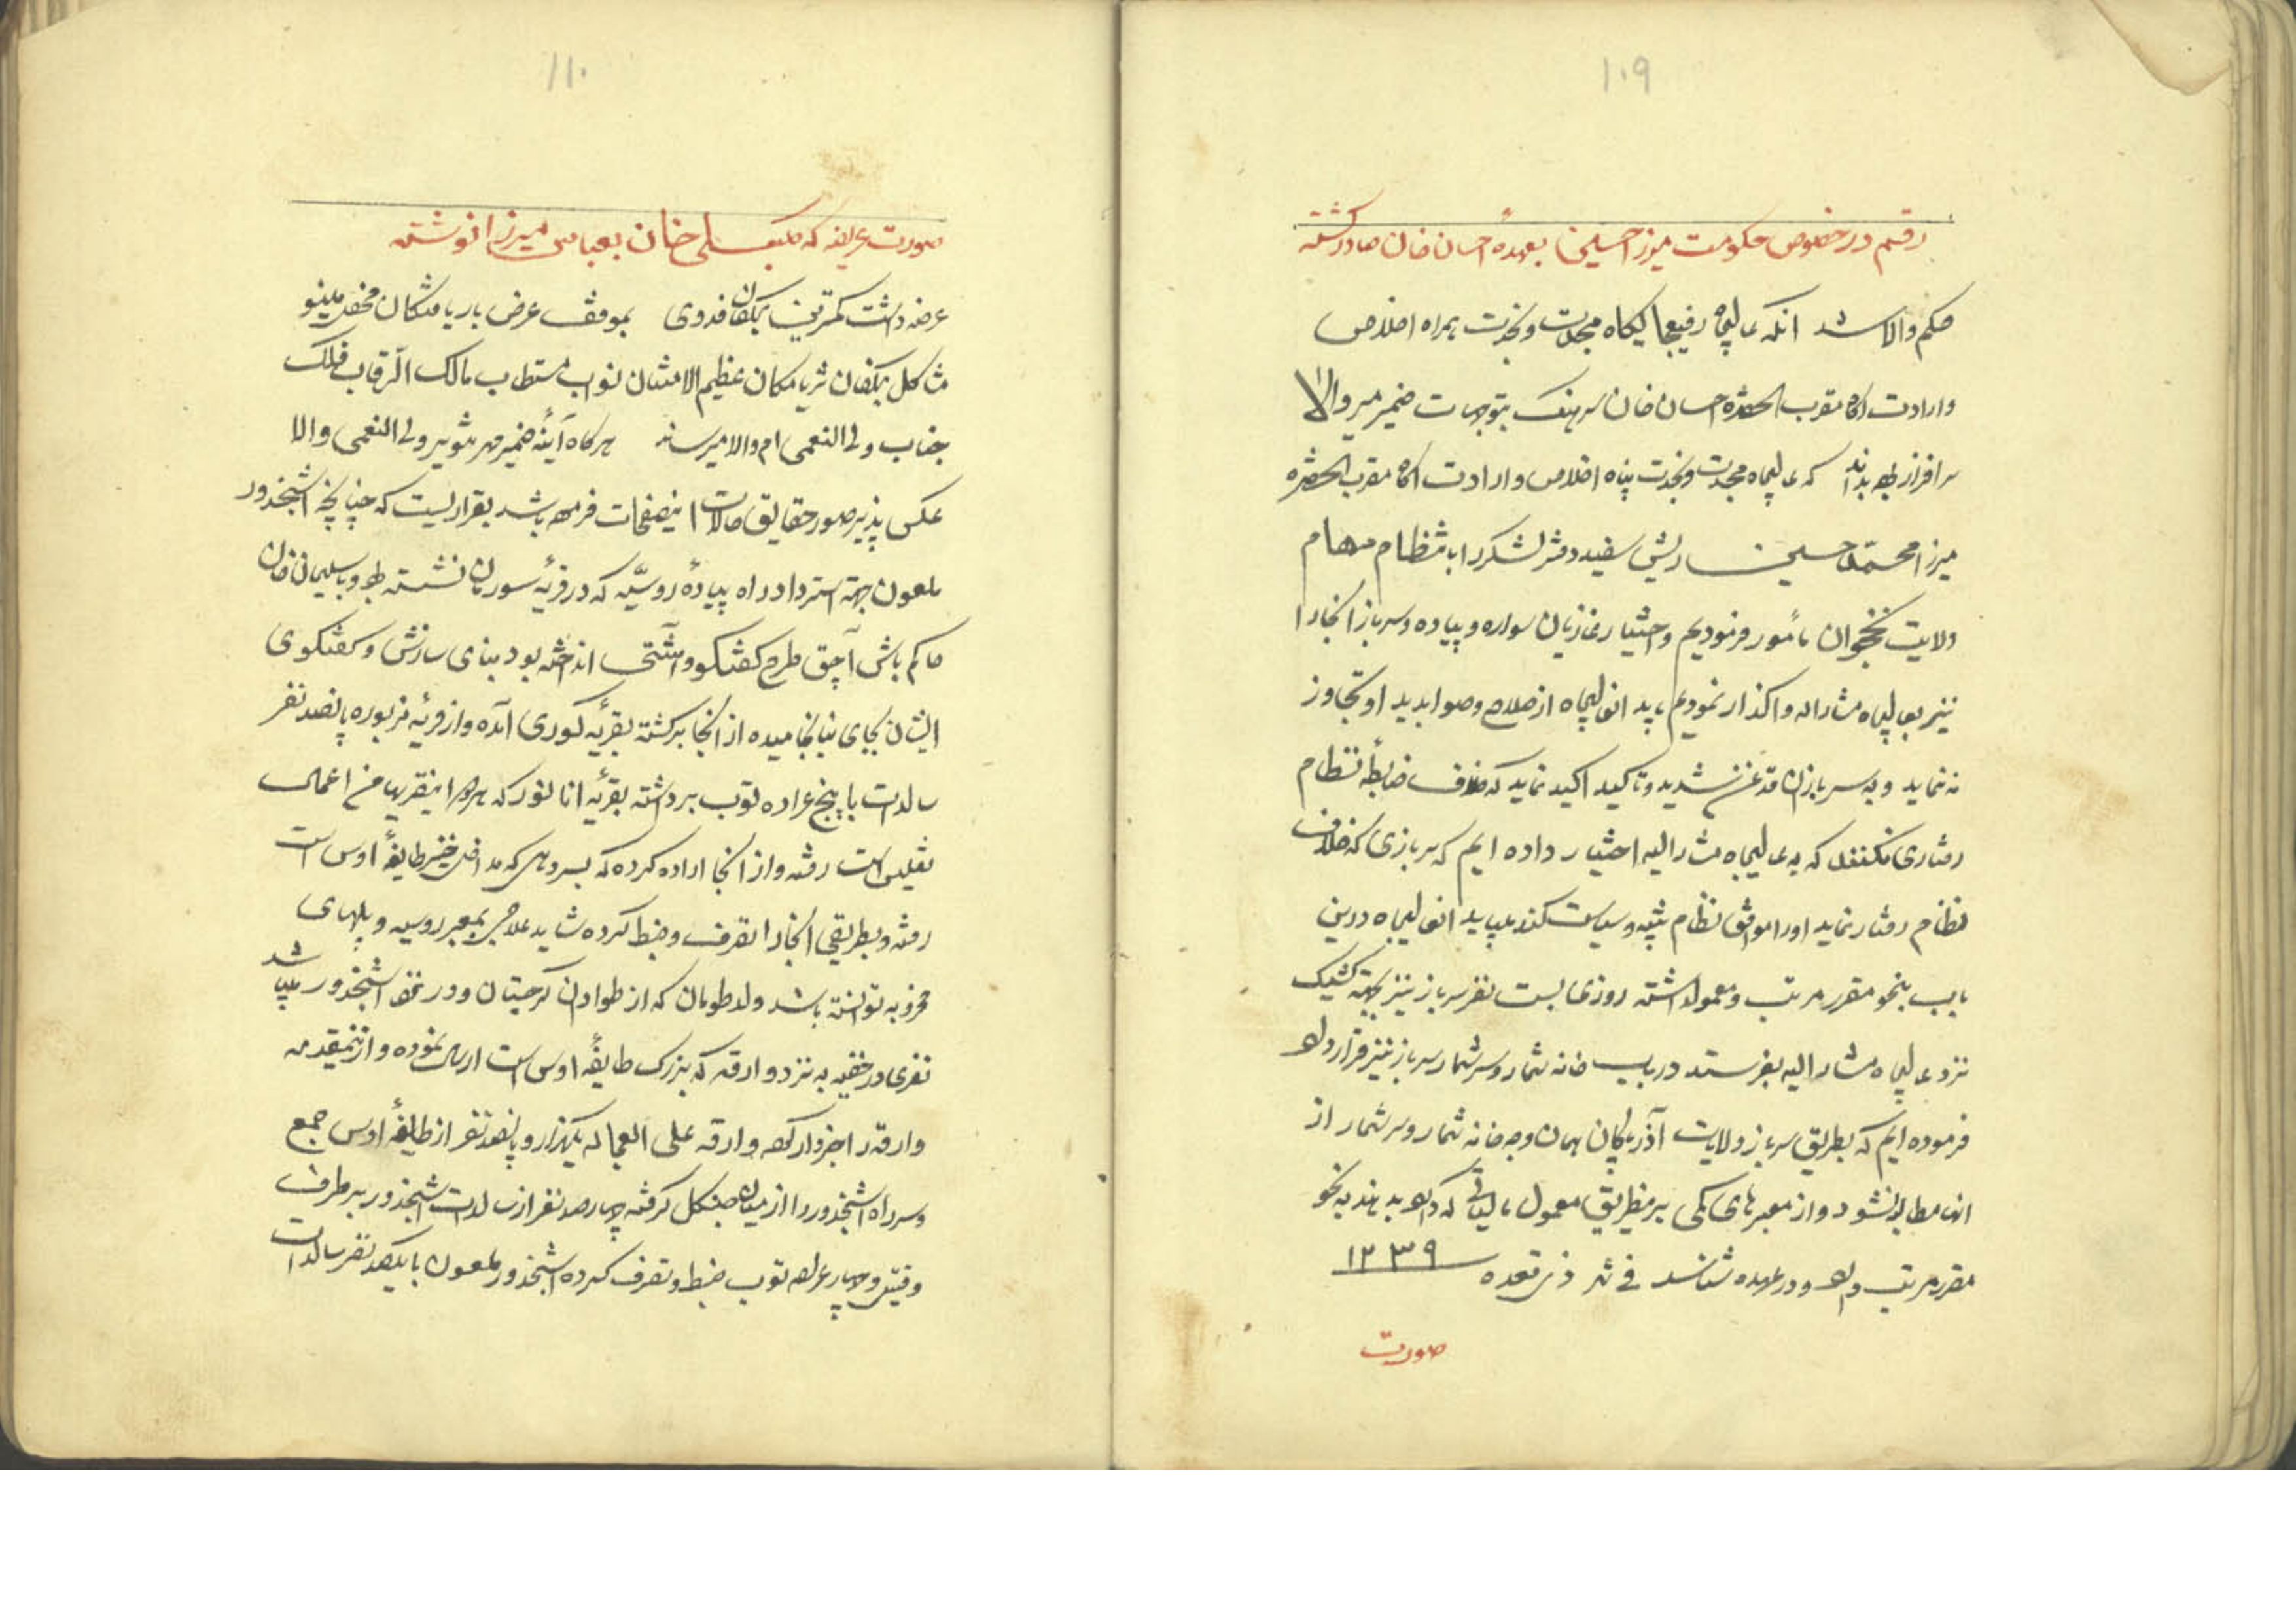 ۱۰۹
رقم در خصوص حکومت میرزا حسینخان بعهدهٔ احسان خان صادر گشته
حکم والا شد آنکه عالیجاه رفیعجایگاه مجدت و نجدت همراه اخلاص
و ارادت آگاه مقرب الحضره احسان خان سرهنگ بتوجهات ضمیر منیر والا
سرافراز بوده بداند که عالیجاه مجدت و نجدت پناه اخلاص و ارادت آگاه مقرب الحضره
میرزا محمد حسین ریش سفید دفتر لشکر را بانتظام مهام
ولایت نخجوان مأمور فرمودیم و اختیار غازیان سواره و پیاده و سرباز آنجا را
نیز بعالیجاه مشارالیه واگذار نمودیم باید آنعالیجاه از صلاح و صوابدید او تجاوز
نه نماید و به سربازان قدغن شدید و تاکید اکید نماید که خلاف ضابطهٔ نظام
رفتاری نکنند که به عالیجاه مشارالیه اختیار داده ایم که سربازی که خلاف
نظام رفتار نماید او را موافق نظام تنبیه و سیاست کند میباید آنعالیجاه درین
باب بنحو مقرر مرتب و معمول داشته روزی بیست نفر سرباز نیز بجهة کشیک
نزد عالیجاه مشارالیه بفرستد در باب خانه شمار و سرشمار سرباز نیز قرار داده
فرموده ایم که بطریق سرباز ولایات آذربایجان همان وجه خانه شمار و سرشمار از
آنها مطالبه نشود و از معبرهای کمی بر بطریق معمول مالیاتی که داده بدهند به نحو
مقرر مرتب داشته و در عهده شناسند فی شهر ذی قعده ۱۲۳۹
صورت
۱۱۰
صورت عریضه که کلبعلی خان بعباس میرزا نوشته
عرضه داشت کمترین بندگان فدوی بموقف عرض باریافتگان محفل مینو
مشاکل بندگان ثریا مکان عظیم الامتنان نواب مستطاب مالک الرقاب فلک
جناب ولی النعمی ام والا میرساند هرگاه آئینهٔ ضمیر مهر تنویر ولی النعمی والا
عکس پذیر صور حقایق حالات اینصفحات فرموده باشد بقراریست که چنانچه اشپخدور
ملعون جهة استرداد راه پیادهٔ روسیه که در قریهٔ سوریان نشسته بود و با سلیمان خان
حاکم باش آچق طرح گفتگو و آشتی انداخته بود بنای سازش و گفتگوی
ایشان بجای نیانجامیده از آنجا برگشته بقریهٔ کوری آمده و از قریهٔ مزبوره پانصد نفر
سالدات با پنج عراده توپ برداشته بقریهٔ انانور که من اعمال
تفلیس است رفته و از آنجا اراده کرده که که مداخل خیز طایفهٔ اوس است
رفته و بطریقی آنجا را تصرف و ضبط کرده شاید علاجی بمعبر روسیه و پلهای
مخروبه توانسته باشد ولد طومان که از طوادان گرجستان و در نزد اشپخدور میباشد
نفری در خفیه به نزد وارقه که بزرگ طایفهٔ اوس است ارسال نموده و از اینمقدمه
وارقه را خبردار کرده وارقه علی العجاله یکهزار و پانصد نفر از طایفهٔ اوس جمع
و سر راه اشپخدور را از میان جنگل گرفته چهارصد نفر از سالدات اشپخدور بر طرف
و قتیل و چهار عراده توپ ضبط و تصرف کرده اشپخدور ملعون با یکصد نفر سالدات